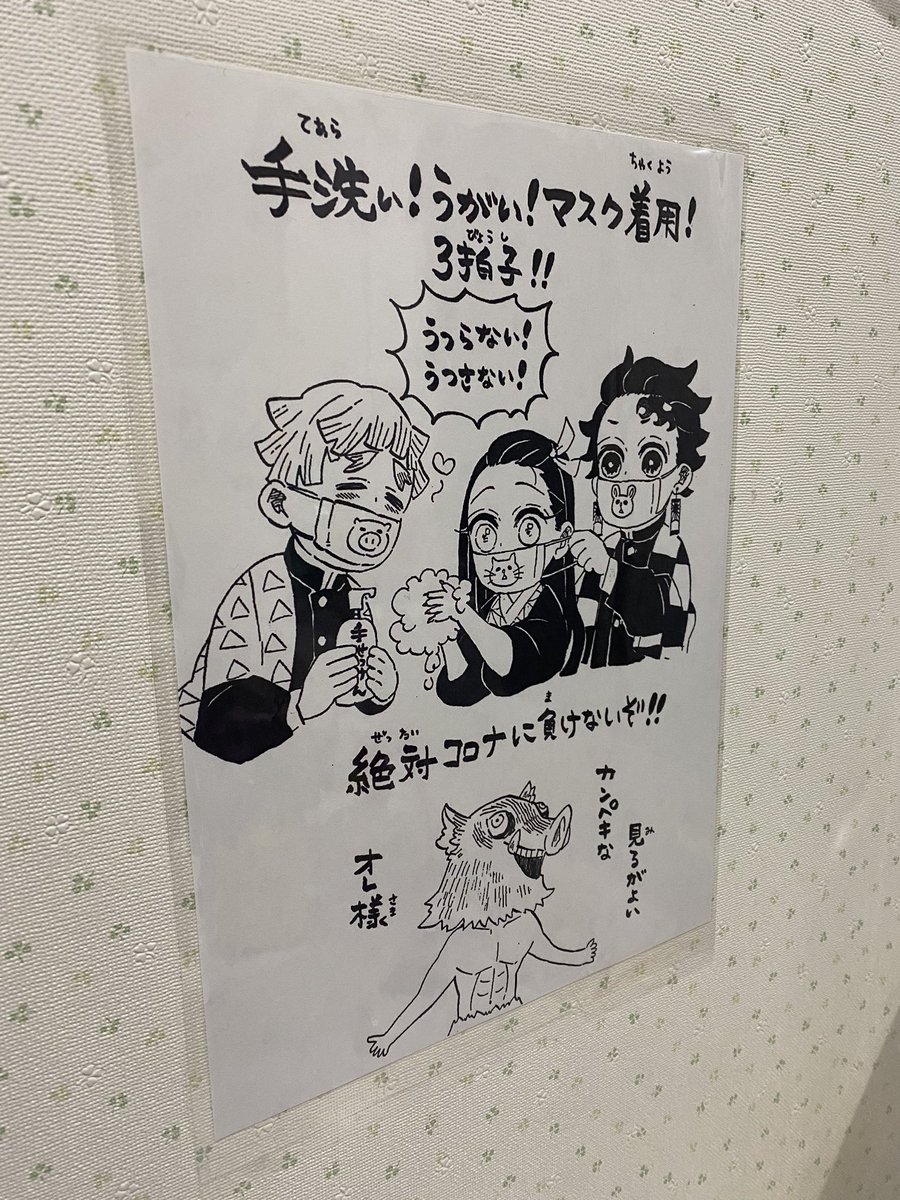 手洗い！うがい！マスク着用！
てあら
ちゃくよう
3拍子！！
びょうし
うつらない！
うつさない！
手せっけん
絶対コロナに負けないぞ！！
ぜったい
ま
見るがよい
み
カンペキな
オレ様
さま